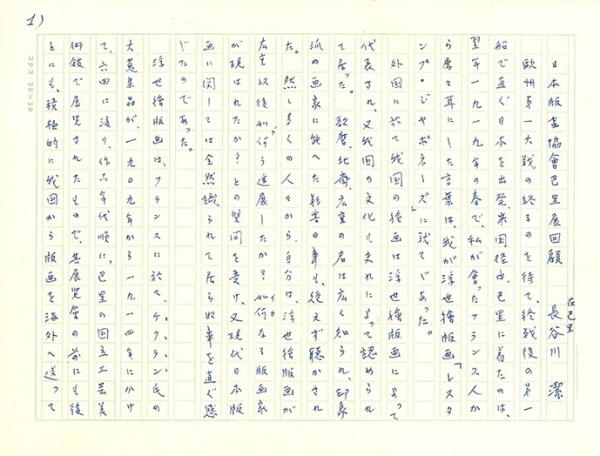 1)
日本版画協会巴里展回顧
在巴里
長谷川潔
欧州第一大戦の終るのを待て、終戦後の第一
船で直ぐ日本を出発、米国経由、巴里に着たのは、
翌年一九一九年の春で、私が會ったフランス人か
ら屡々耳にした言葉は、我が浮世繪版画「レスタ
ンプ・ジャポネーズ」に就てであった。
外国に於て我国の繪画は浮世繪版画によって
代表され、又我国の文化もまれによって認められ
て居った。歌麿、北斎、広重の名は広く知られ、印象
派の画家に與へた影響の事も、絶えず聴かされ
た。然し多くの人々から、自分は、浮世繪版画が
広重以後如何う進展したか？如何なる版画家
が現はれたか？との質問を受け、又現代日本版
画に関しては全然識られて居らぬ事を直ぐ感
じたのであった。
浮世繪版画は、フランスに於て、ケクラン氏の
大蒐集品が、一九〇九年から一九一四年にかけ
て、六回に渡り作品年代順に、巴里の国立工芸美
術館で展覧されたもので、其展覧會の前にも後
にも、積極的に我国から版画を海外へ送って
コクヨ 20×20